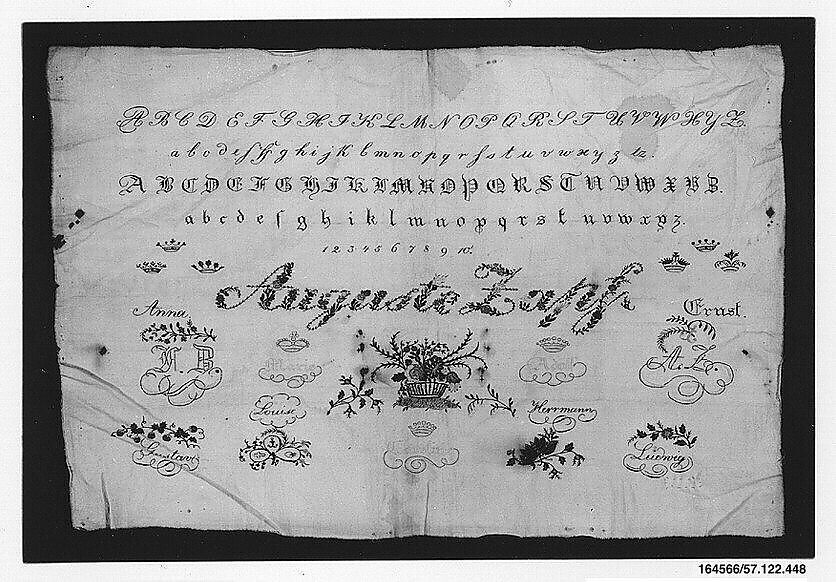 A B C D E F G H I K L M N O P Q R S T U V W X Y Z.
a b c d e f ff g h i j k l m n o p q r s s t u v w x y z tz.
A B C D E F G H I K L M N O P Q R S T U V W X Y Z.
a b c d e f g h i k l m n o p q r s t u v w x y z.
1 2 3 4 5 6 7 8 9 10.
Auguste Zapf
Anna Ernst.
A. Z.
Louise Herrmann
Gustav Ludwig
164566/57.122.448